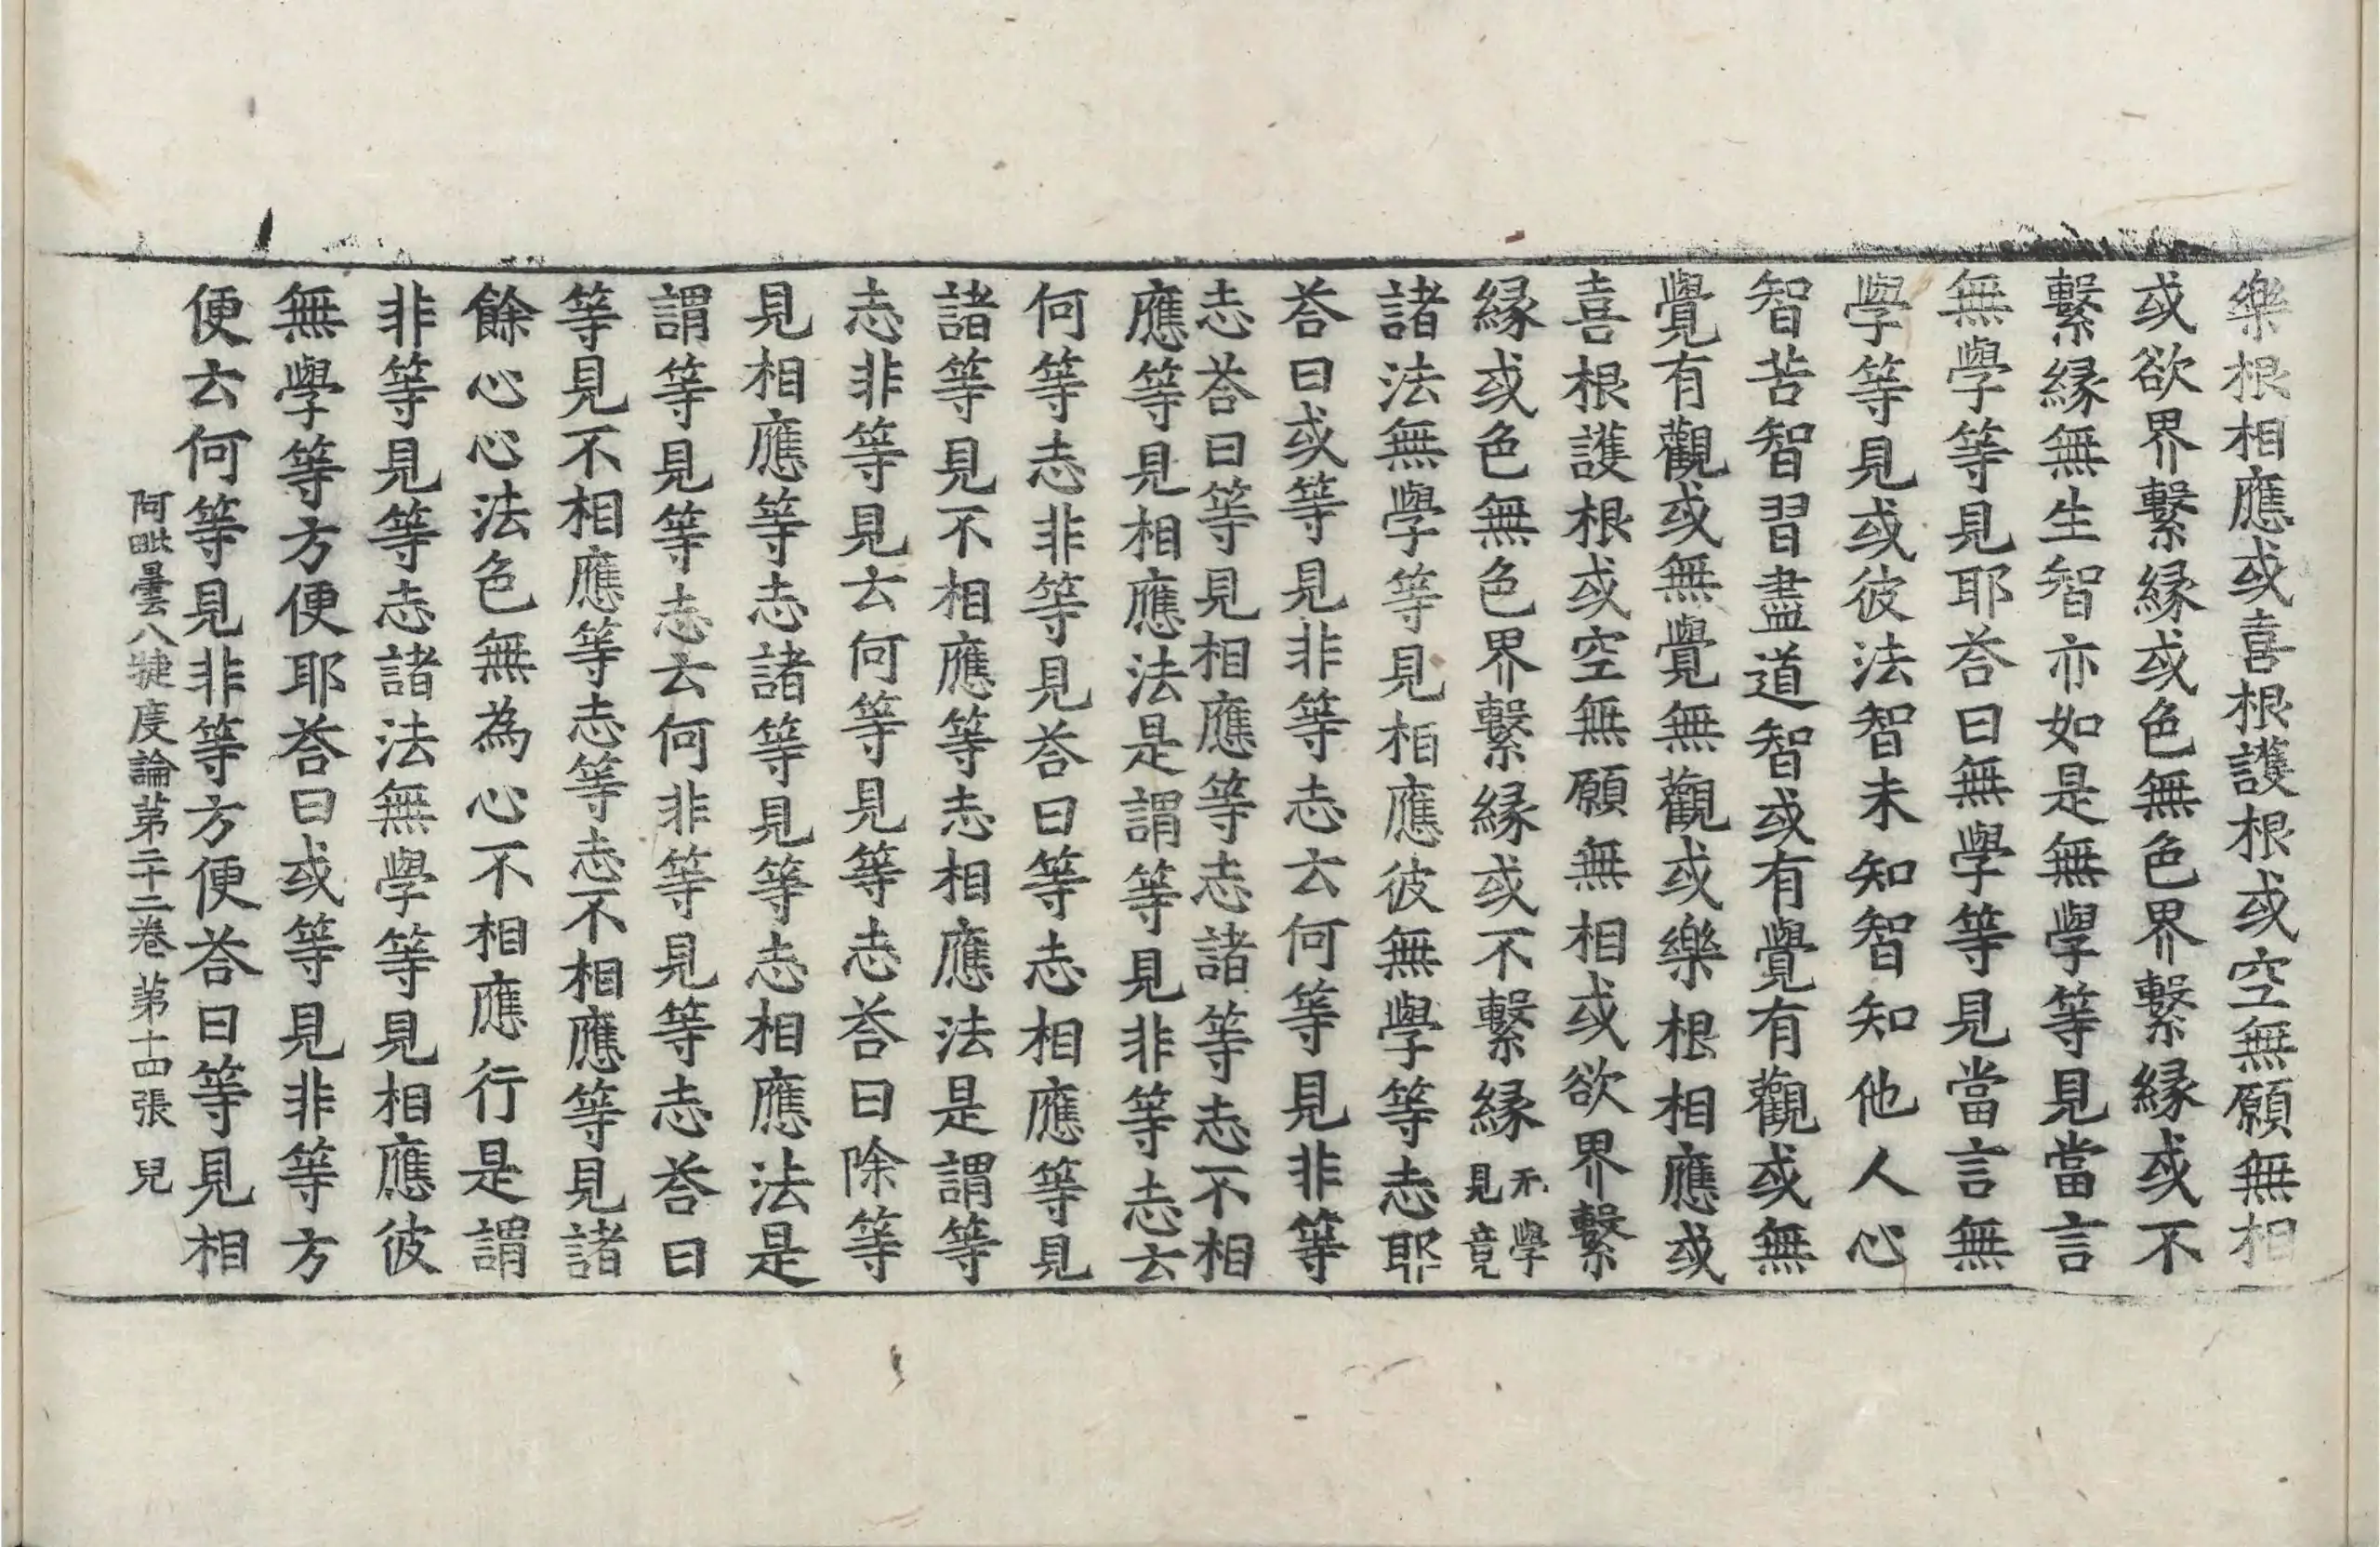 樂根相應或喜根護根或空無願無相
或欲界繫緣或色無色界繫緣或不
繫緣無生智亦如是無學等見當言
無學等見耶荅曰無學等見當言無
學等見或彼法智未知智知他人心
智苦智習盡道智或有覺有觀或無
覺有觀或無覺無觀或樂根相應或
喜根護根或空無願無相或欲界繫
緣或色無色界繫緣或不繫緣禾學見竟
諸法無學等見相應彼無學等志耶
荅曰或等見非等志云何等見非等
志荅曰等見相應等志諸等志不相
應等見相應法是謂等見非等志云
何等志非等見荅曰等志相應等見
諸等見不相應等志相應法是謂等
志非等見云何等見等志荅曰除等
見相應等志諸等見等志相應法是
謂等見等志云何非等見等志荅曰
等見不相應等志等志不相應等見諸
餘心心法色無為心不相應行是謂
非等見等志諸法無學等見相應彼
無學等方便耶荅曰或等見非等方
便云何等見非等方便荅曰等見相
阿毗曇八揵度論苐二十二卷 苐十四張 兒